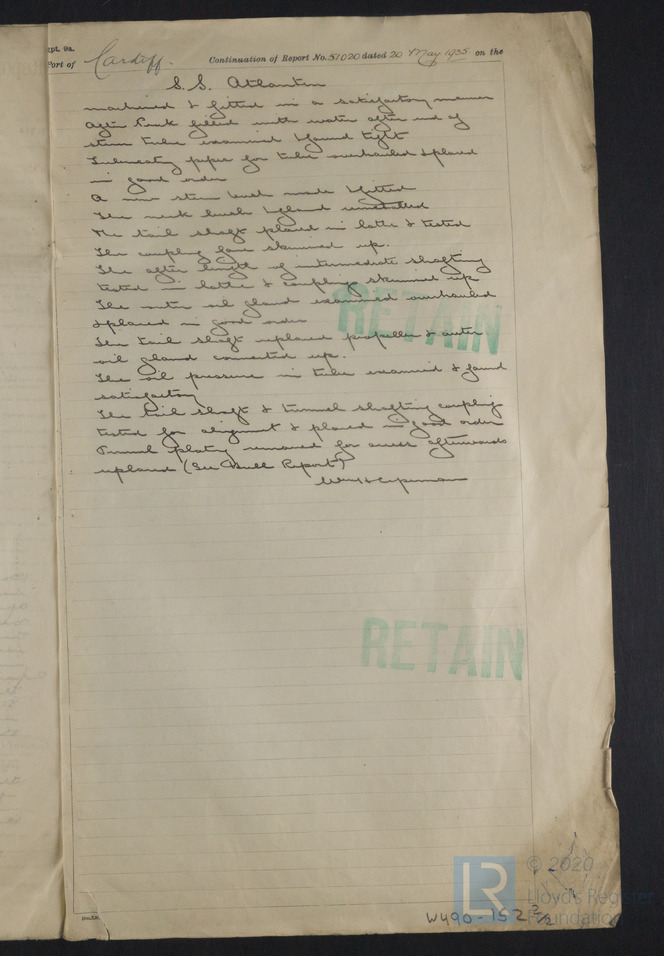 Rpt. 9a.
Port of Cardiff. Continuation of Report No. 51020 dated 20 May 1935 on the
S.S. Atlantic
machined & fitted in a satisfactory manner
After Peak filled with water after end of
stern tube examined & found tight
Lubricating pipes for tube overhauled & placed
in good order
A new stern bush made & fitted
The neck bush & gland
The tail shaft placed in lathe & tested
The coupling face skimmed up.
The after length of intermediate shafting
tested in lathe & coupling skimmed up
The outer oil gland examined overhauled
& placed in good order
The tail shaft replaced propeller & outer
oil gland connected up.
The oil pressure in tube examined & found
satisfactory
The tail shaft & tunnel shafting couplings
tested for alignment & placed in good order
Tunnel plating removed for access afterwards
replaced (See Hull Report)
RETAIN
RETAIN
© 2020
Lloyd's Register
Foundation
LR
W490-152 2/2